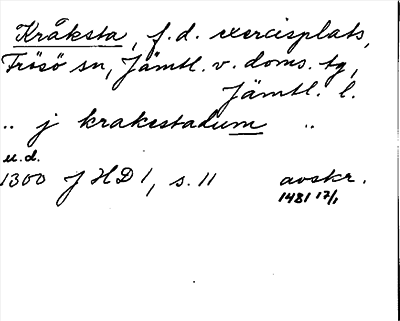 Kråksta, f.d. exercisplats,
Frösö sn, Jämtl. v. doms. tg,
Jämtl. l.
.. j krakestadum ..
u.d.
1300 JHD 1, s. 11 avskr.
1481 17/1